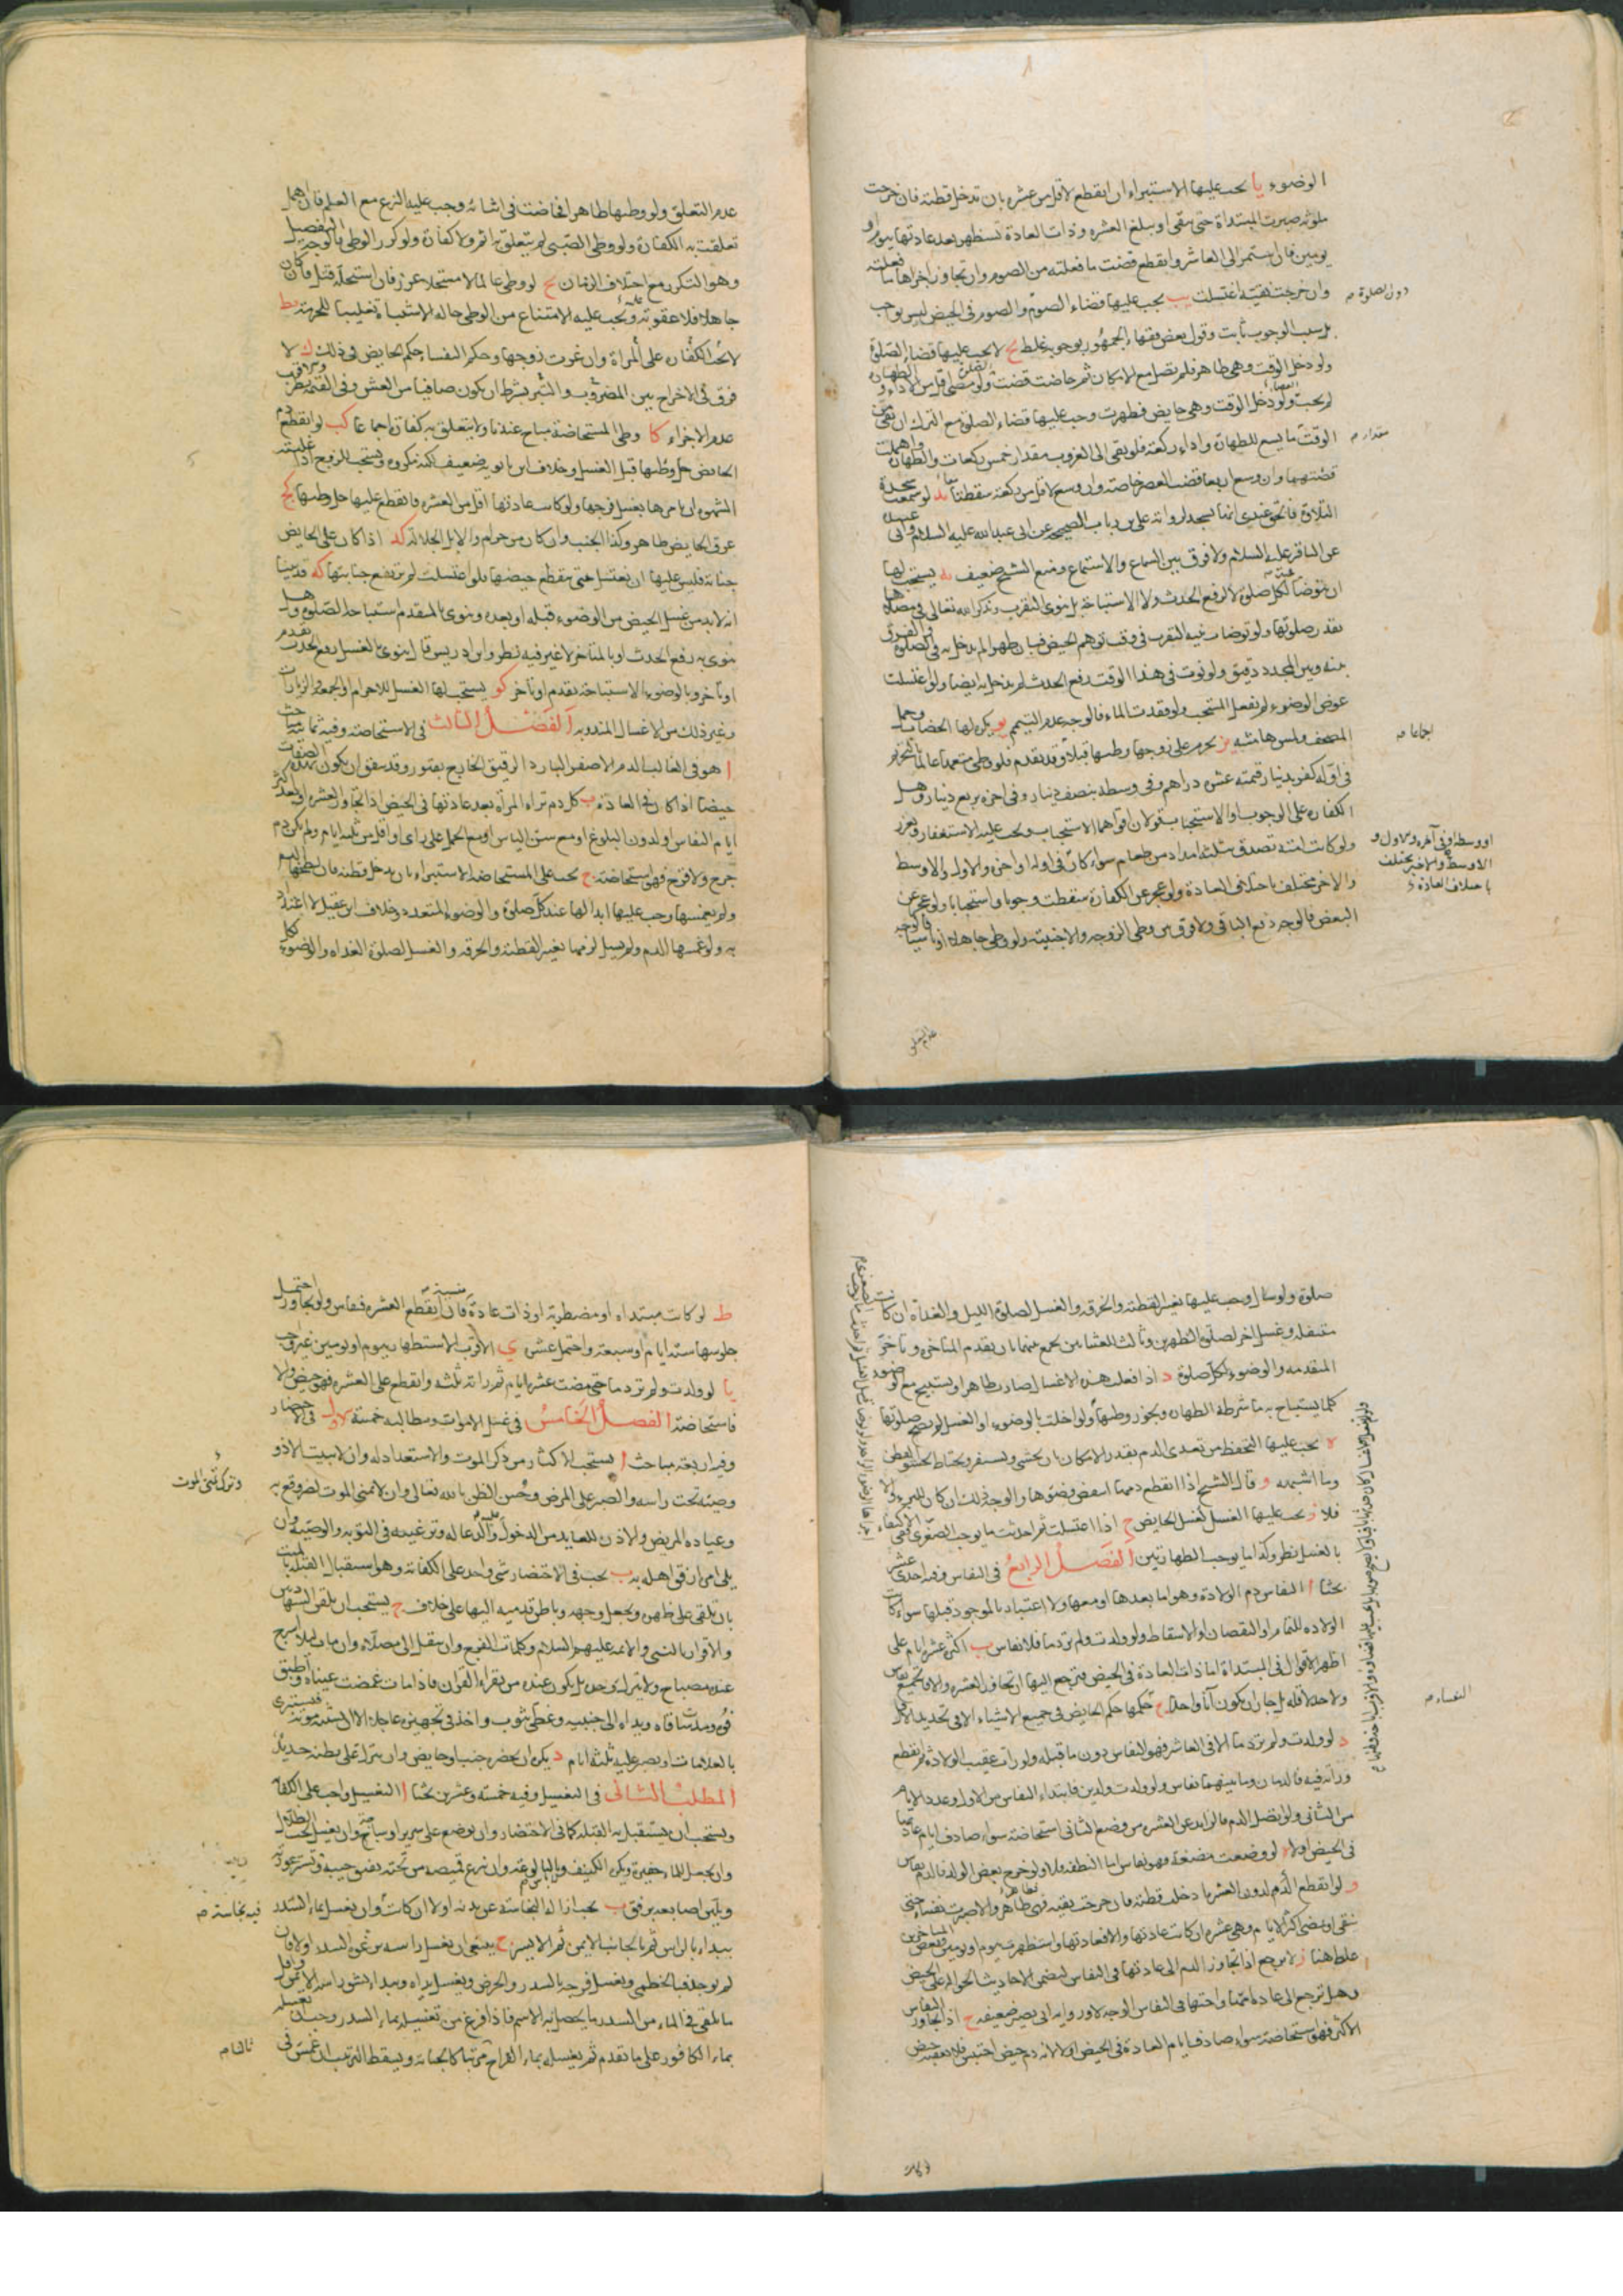 الوضوء يا يجب عليها الاستبراء ان انقطع لاقل من عشرة بان تدخل قطنة فان خرجت
ملوثة صبرت المبتداة حتى تنقى او يبلغ العشرة وذات العادة تستظهر بعد عادتها بيوم او
يومين فان استمر الى العاشر وانقطع قضت ما فعلته من الصوم وان تجاوز اجزاها ما فعلته
وان خرجت نقية اغتسلت يب يجب عليها قضاء الصوم والصوم في الحيض ليس بواجب
دون الصلوة
بل سبب الوجوب ثابت وقول بعض فقهاء الجمهور بوجوبه غلط يج لا يجب عليها قضاء الصلوة
ولو دخل الوقت وهي طاهر فلم تصل مع الامكان ثم حاضت قضت ولو مضى اقل من الاداء والطهارة
لم يجب ولو دخل الوقت وهي حايض فطهرت وجب عليها قضاء الصلوة مع الترك ان بقي من
مقدار
الوقت ما يسع للطهارة واداء ركعة فلو بقي الى الغروب مقدار خمس ركعات والطهارة واهملت
قضتهما وان وسع اربعا قضت العصر خاصة وان وسع لاقل من ركعة سقطتا يد لو سمعت سجدة
التلاوة فالحق عندي انها تسجد لرواية علي بن رياب الصحيحة عن ابي عبيدة
عن الباقر عليه السلام ولا فرق بين السماع والاستماع ومنع الشيخ ضعيف يه يستحب لها
ان تتوضا لكل صلوة لا لرفع الحدث ولا الاستباحة بل تنوي التقرب وتذكر الله تعالى في مصلاها
بقدر صلوتها ولو توضات بنية التقرب في وقت توهم الحيض فبان طهرا لم يدخل به في الصلوة والفرق
بينه وبين المجدد دقيق ولو نوت في هذا الوقت رفع الحدث لم يدخل به ايضا ولو اغتسلت
عوض الوضوء لم تفعل المستحب ولو فقدت الماء فالوجه عدم التيمم يو يكره لها الخضاب وحمل
اجماعا
المصحف ولمس هامشه يز يحرم على زوجها وطئها قبلا وقد تقدم فلو وطئ متعمدا عالما بالتحريم
في اوله كفر بدينار قيمته عشرة دراهم وفي وسطه بنصف دينار وفي اخره بربع دينار وهل
الكفارة على الوجوب او الاستحباب قولان اقواهما الاستحباب ويجب عليه الاستغفار ويعزر
ولو كانت امته تصدق بثلثة امداد من طعام سواء كان في اوله او اخره والاول والاوسط
والاخر مختلف باختلاف العادة ولو عجز عن الكفارة سقطت وجوبا واستحبابا ولو عجز عن
البعض فالوجه دفع الباقي ولا فرق بين وطئ الزوجة والاجنبية ولو وطئ جاهلا او ناسيا فالوجه
او وسطه او في آخره والاول و
الاوسط والاخير يختلف
باختلاف العادة
عدم التعلق
عدم التعلق ولو وطئها طاهرا فحاضت في اثنائه وجب عليه النزع مع العلم فان اهمل
تعلقت به الكفارة ولو وطئ الصبي لم يتعلق به اثم ولا كفارة ولو كرر الوطئ فالوجه التفصيل
وهو التكرر مع اختلاف الزمان يح لو وطئ عالما لا مستحلا عزر فان استحله قتل فان كان
جاهلا فلا عقوبة ويجب عليه الامتناع من الوطئ حالة الاشتباه تغليبا للحرمة يط
لا يجب الكفارة على المراة وان غرت زوجها وحكم النفساء حكم الحايض في ذلك ك لا
فرق في الاخراج بين المضروب والتبر بشرط ان يكون صافيا من الغش وفي القيمة نظر
عدم الاجزاء كا وطئ المستحاضة مباح عندنا ولا يتعلق به كفارة اجماعا كب لو انقطع دم
الحايض حل وطئها قبل الغسل وخلاف ابن بابويه ضعيف لكنه مكروه ويستحب للزوج اذا غلبته
الشهوة ان يامرها بغسل فرجها ولو كانت عادتها اقل من العشرة فانقطع عليها حل وطئها كج
عرق الحايض طاهر وكذا الجنب وان كان من حرام والابل الجلالة كد اذا كان على الحايض
جنابة فليس عليها ان تغتسل حتى ينقطع حيضها فلو اغتسلت لم يرتفع جنابتها كه قد بينا
انه لا بد من غسل الحيض من الوضوء قبله او بعده وتنوي بالمقدم استباحة الصلوة وهل
تنوي به رفع الحدث او بالمتاخر لا غير فيه نظر وابن ادريس قال تنوي بالغسل رفع الحدث تقدم
او تاخر وبالوضوء الاستباحة تقدم او تاخر كو يستحب لها الغسل للاحرام والجمعة والزيارات
وغير ذلك من الاغسال المندوبة الفصل الثالث في الاستحاضة وفيه ثمانية مباحث
ا هو في الغالب الدم الاصفر البارد الرقيق الخارج بفتور وقد يتفق ان يكون بهذه الصفات
حيضا اذا كان في العادة ب كل دم تراه المراة بعد عادتها في الحيض اذا تجاوز العشرة او بعد اكثر
ايام النفاس او لدون البلوغ او مع سن الياس او مع الحمل على راي او اقل من ثلثة ايام ولم يكن دم
جرح ولا قرح فهو استحاضة ج يجب على المستحاضة الاستبراء بان يدخل قطنة فان لطخها الدم
ولم يغمسها وجب عليها ابدالها عند كل صلوة والوضوء المتعدد وخلاف ابن عقيل لا اعتداد
به ولو غمسها الدم ولم يسل لزمها تغيير القطنة والخرقة والغسل لصلوة الغداة والوضوء لكل
صلوة ولو سال وجب عليها تغيير القطنة والخرقة والغسل لصلوة الليل والغداة ان كانت
متنفلة وغسل اخر لصلوة الظهرين وثالث للعشائين يجمع بينهما بان يقدم المتاخرة وتاخر
المتقدمة والوضوء لكل صلوة د اذا فعلت هذه الاغسال صارت طاهرا وتستبيح مع الوضوء
كلما يستباح به ما شرطه الطهارة ويجوز وطئها ولو اخلت بالوضوء او الغسل لم يصح صلوتها
ه يجب عليها التحفظ من تعدي الدم بقدر الامكان بان يحتشي وتستثفر ويحتاط بحشو القطن
وما اشبهه و قال الشيخ اذا انقطع دمها انتقض وضوءها والوجه في ذلك ان كان للبرء والا
فلا ز يجب عليها الغسل كغسل الحايض ح اذا اغتسلت ثم احدثت ما يوجب الصغرى ففي الاكتفاء
بالغسل نظر وكذا ما يوجب الطهارتين الفصل الرابع في النفاس وفيه احدى عشر
بحثا ا النفاس دم الولادة وهو اما بعدها او معها ولا اعتبار بالموجود قبلها سواء كانت
الولادة للتمام او النقصان او الاسقاط ولو ولدت ولم تر دما فلا نفاس ب اكثره عشرة ايام على
اظهر الاقوال في المبتداة اما ذات العادة في الحيض فترجع اليها ان تجاوز العشرة والا فالجميع نفاس
ولا حد لاقله بل جاز ان يكون آنا واحدا ج حكمها حكم الحايض في جميع الاشياء الا في تحديد الاقل
النفساء
د لو ولدت ولم تر دما الا في العاشر فهو النفاس دون ما قبله ولو رات عقيب الولادة ثم انقطع
وراته فيه فالدمان وما بينهما نفاس ولو ولدت ولدين فابتداء النفاس من الاول وعدد الايام
من الثاني ولو اتصل الدم فالزايد عن العشرة من وضع الثاني استحاضة سواء صادف ايام عادتها
في الحيض او لا ه لو وضعت مضغة فهو نفاس اما النطفة فلا ولو خرج بعض الولد فالدم نفاس
و لو انقطع الدم لدون العشر ادخلت قطنة فان خرجت نقية فهي طاهر والا صبرت نفساء حتى
تنقى او يمضي اكثر الايام وهي عشرة ان كانت عادتها والا فعادتها واستظهرت بيوم او يومين وبعض المتاخرين
غلط هنا ز لا ترجع اذا تجاوز الدم الى عادتها في النفاس لتضمن الاحاديث الحوالة على الحيض
وهل ترجع الى عادة امها واختها في النفاس الوجه لا ورواية ابي بصير ضعيفة ح اذا تجاوز النفاس
الاكثر فهو استحاضة سواء صادف ايام العادة في الحيض او لا لانه دم حيض احتبس فلا يعقبه حيض
ط لو كانت مبتداة او مضطربة او ذات عادة منسية فان انقطع العشرة فنفاس ولو تجاوز احتمل
جلوسها ستة ايام او سبعة واحتمل عشرة ي الاقرب الاستظهار بيوم او يومين غير واجب
يا لو ولدت ولم تر دما حتى مضت عشرة ايام ثم راته ثلثة وانقطع على العشرة فهو حيض والا
فاستحاضة الفصل الخامس في غسل الاموات ومطالبه خمسة الاول في الاحتضار
وفيه اربعة مباحث ا يستحب الاكثار من ذكر الموت والاستعداد له وان لا يبيت الا و
وترك تمني الموت
وصيته تحت راسه والصبر على المرض وحسن الظن بالله تعالى وان لا يتمنى الموت لضر وقع به
وعيادة المريض والاذن للعايد من الدخول والدعاء له وترغيبه في التوبة والوصية وان
يلي امره ارفق اهله به ب يجب في الاحتضار شئ واحد على الكفاية وهو استقبال القبلة بالميت
بان يلقى على ظهره ويجعل وجهه وباطن قدميه اليها على خلاف ج يستحب ان يلقن الشهادتين
والاقرار بالنبي والائمة عليهم السلام وكلمات الفرج وان ينقل الى مصلاه وان مات ليلا اسرج
عنده مصباح ولا يترك وحده بل يكون عنده من يقراء القران فاذا مات غمضت عيناه واطبق
فوه ومدت ساقاه ويداه الى جنبيه وغطي بثوب واخذ في تجهيزه عاجلا الا ان اشتبه موته فيستبرى
بالعلامات او يصبر عليه ثلثة ايام د يكره ان يحضره جنب او حايض وان يترك على بطنه حديد
المطلب الثاني في التغسيل وفيه خمسة وعشرون بحثا ا التغسيل واجب على الكفاية
ويستحب ان يستقبل به القبلة كما في الاحتضار وان يوضع على سرير او ساجة وان يغسل تحت الظلال
وان يجعل للماء حفيرة ويكره الكنيف ولا باس بالبالوعة وان ينزع قميصه من تحته بفتق جيبه وتستر عورته
ويلين اصابعه برفق ب يجب ازالة النجاسة عن بدنه اولا ان كانت وان يغسل بماء السدر
فيه نجاسة
يبداء بالراس ثم بالجانب الايمن ثم الايسر ج ينبغي ان يغسل راسه من رغوة السدر اولا فان
لم يوجد فبالخطمي ويغسل فرجه بالسدر والحرض ويغسل يداه ويبداء بشق راسه الايمن واقل
ما يلقى في الماء من السدر ما يحصل به الاسم فاذا فرغ من تغسيله بماء السدر وجب ان يغسله
بماء الكافور على ما تقدم ثم يغسله بماء القراح مرتبا كالجنابة ويسقط الترتيب ان غمس في